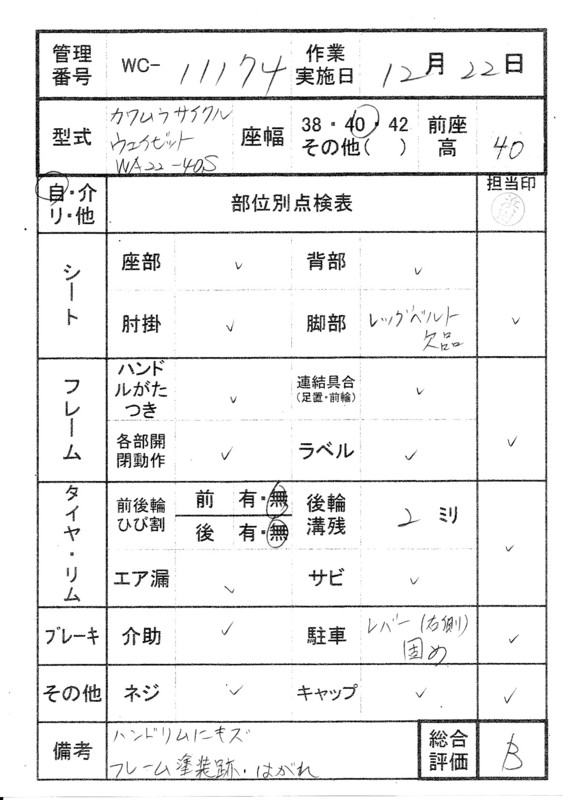 管理番号 WC- 11174 作業実施日 12月 22日
型式 カワムラサイクル ウェイビット WA22-40S 座幅 38・40・42 その他( ) 前座高 40
自・介 リ・他 部位別点検表 担当印
シート 座部 ✓ 背部 ✓
肘掛 ✓ 脚部 レッグベルト 欠品 ✓
フレーム ハンドルがたつき ✓ 連結具合 (足置・前輪) ✓
各部開閉動作 ✓ ラベル ✓ ✓
タイヤ・リム 前後輪ひび割 前 有・無 後 有・無 後輪溝残 2 ミリ
エア漏 ✓ サビ ✓ ✓
ブレーキ 介助 ✓ 駐車 レバー(右側) 固め ✓
その他 ネジ ✓ キャップ ✓ ✓
備考 ハンドリムにキズ
フレーム塗装跡・はがれ 総合評価 B